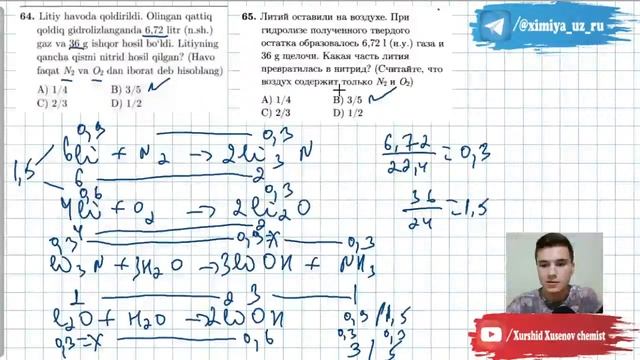 64. Litiy havoda qoldirildi. Olingan qattiq
qoldiq gidrolizlanganda 6,72 litr (n.sh.)
gaz va 36 g ishqor hosil bo'ldi. Litiyning
qancha qismi nitrid hosil qilgan? (Havo
faqat N₂ va O₂ dan iborat deb hisoblang)
A) 1/4 B) 3/5
C) 2/3 D) 1/2
65. Литий оставили на воздухе. При
гидролизе полученного твердого
остатка образовалось 6,72 l (н.у.) газа и
36 g щелочи. Какая часть лития
превратилась в нитрид? (Считайте, что
воздух содержит только N₂ и O₂)
A) 1/4 B) 3/5
C) 2/3 D) 1/2
@ximiya_uz_ru
0,9 0,3
1,5 6Li + N₂ → 2Li₃N
6 2
0,6 0,3
4Li + O₂ → 2Li₂O
4 2
0,3 0,9 x 0,3
Li₃N + 3H₂O → 3LiOH + NH₃
1 3 1
Li₂O + H₂O → 2LiOH
0,3=x 0,6
6,72/22,4 = 0,3
36/24 = 1,5
0,9 / 1,5
0,3 0,3
3 / 5
/Xurshid Xusenov chemist